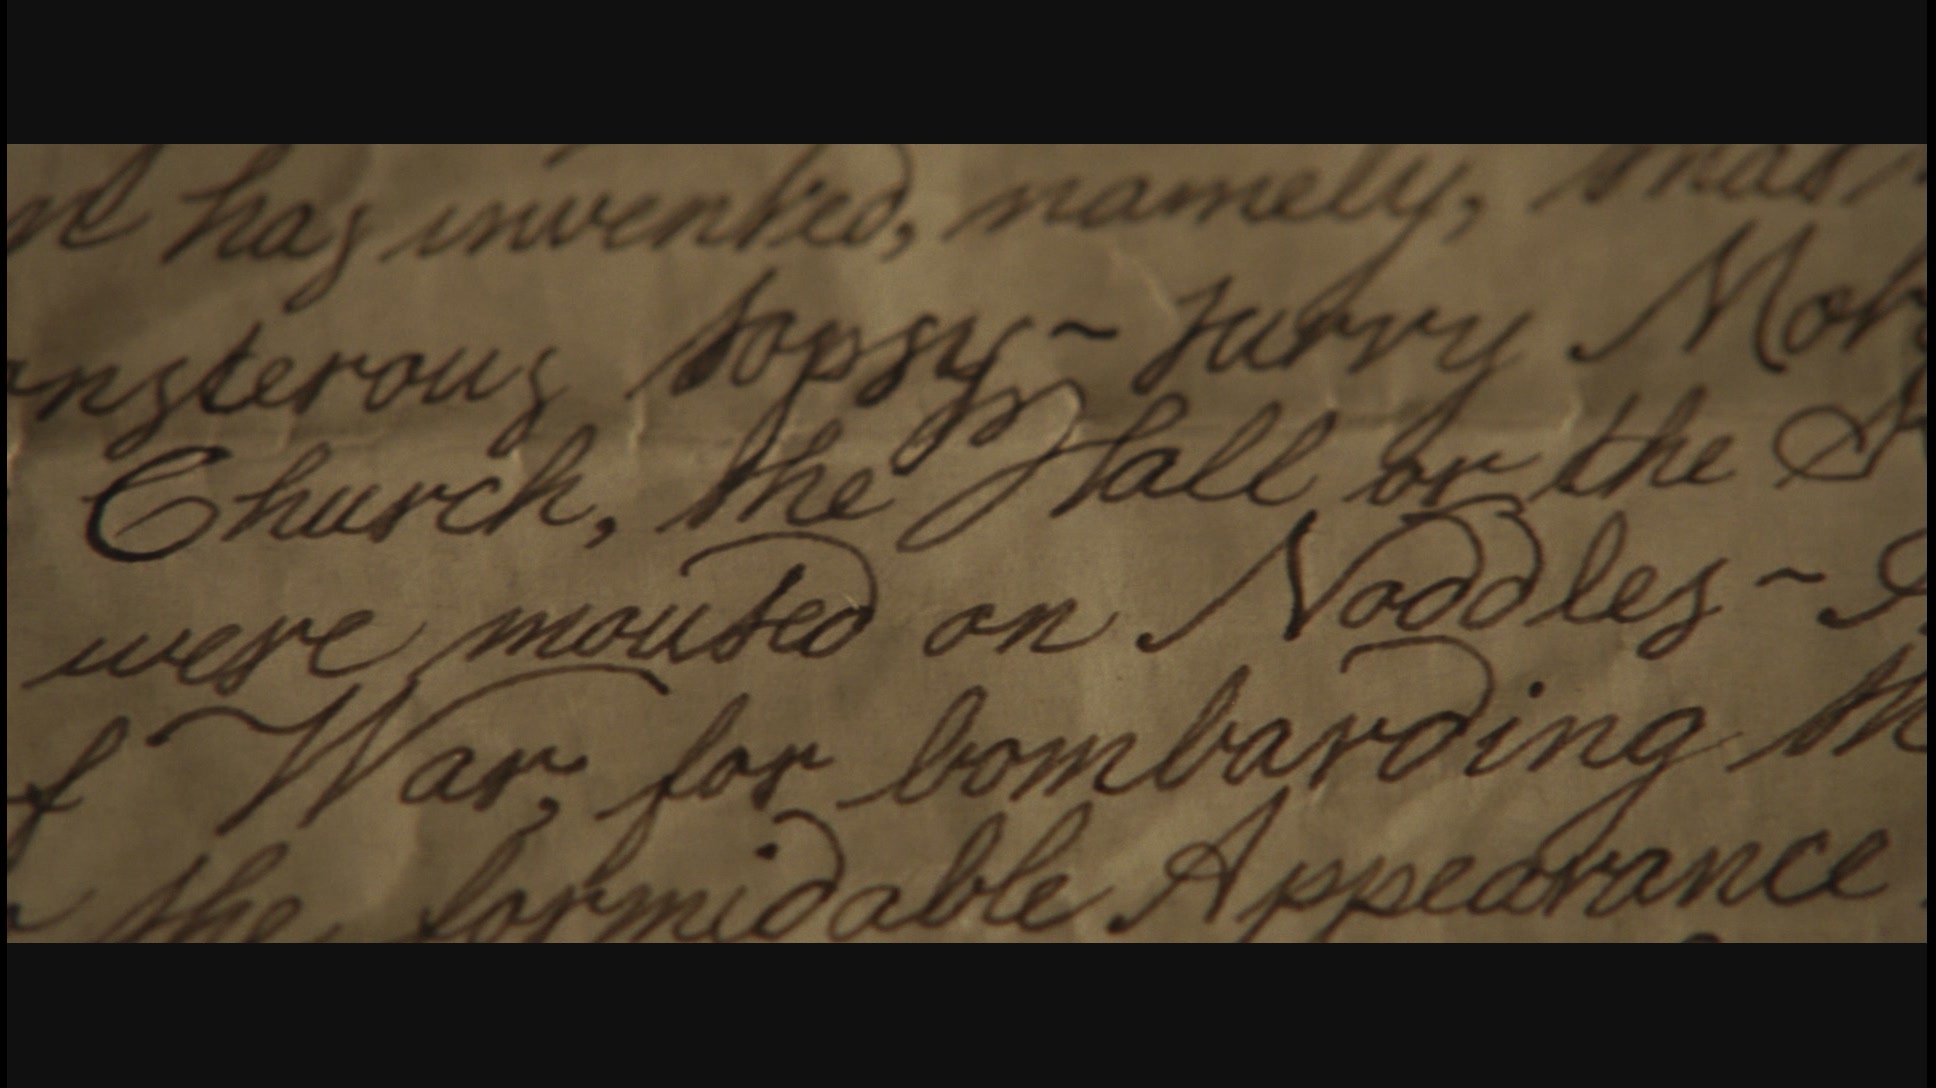 has invented, namely, that
ansterous topsy~turvy Mob
Church, the Hall or the
were mouted on Noddles~
f War, for bombarding th
the formidable Appearance